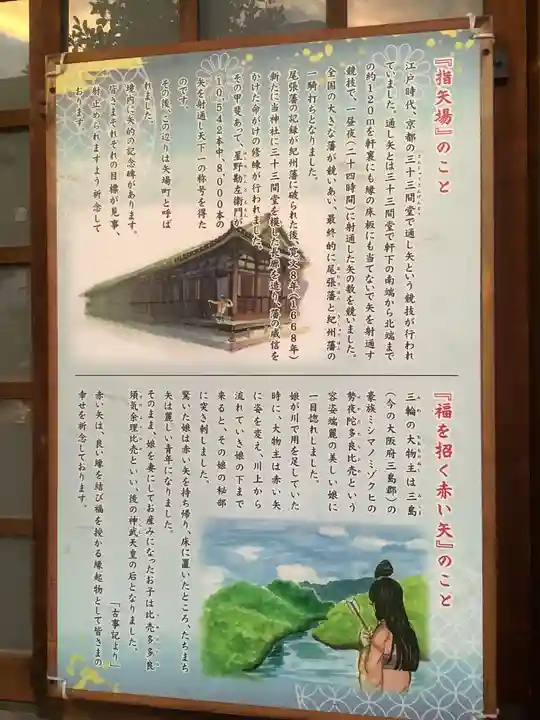 『指矢場』のこと
江戸時代、京都の三十三間堂で通し矢という競技が行われ
ていました。通し矢とは三十三間堂で軒下の南端から北端まで
の約120mを軒裏にも縁の床板にも当てないで矢を射通す
競技で、一昼夜(二十四時間)に射通した矢の数を競いました。
全国の大きな藩が競いあい、最終的に尾張藩と紀州藩の
一騎打ちとなりました。
尾張藩の記録が紀州藩に破られた後、寛文8年(1668年)
新たに当神社に三十三間堂を模した長廊を造り、藩の威信を
かけた命がけの修練が行われました。
その甲斐あって、星野勘左衛門が
10,542本中、8000本の
矢を射通し天下一の称号を得た
のです。
その後、この辺りは矢場町と呼ば
れました。
境内に矢的の記念碑があります。
皆さまそれぞれの目標が見事、
射止められますよう祈念して
おります。
『福を招く赤い矢』のこと
三輪の大物主は三島
(今の大阪府三島郡)の
豪族ミシマノミゾクヒの
勢夜陀多良比売という
容姿端麗の美しい娘に
一目惚れしました。
娘が川で用を足していた
時に、大物主は赤い矢
に姿を変え、川上から
流れていき娘の下まで
来ると、その娘の秘部
に突き刺しました。
驚いた娘は赤い矢を持ち帰り、床に置いたところ、たちまち
矢は麗しい青年になりました。
そのまま、娘を妻にしてお産みになったお子は比売多多良
須気余理比売といい、後の神武天皇の后となりました。
「古事記より」
赤い矢は、良い縁を結び福を授かる縁起物として皆さまの
幸せを祈念しております。